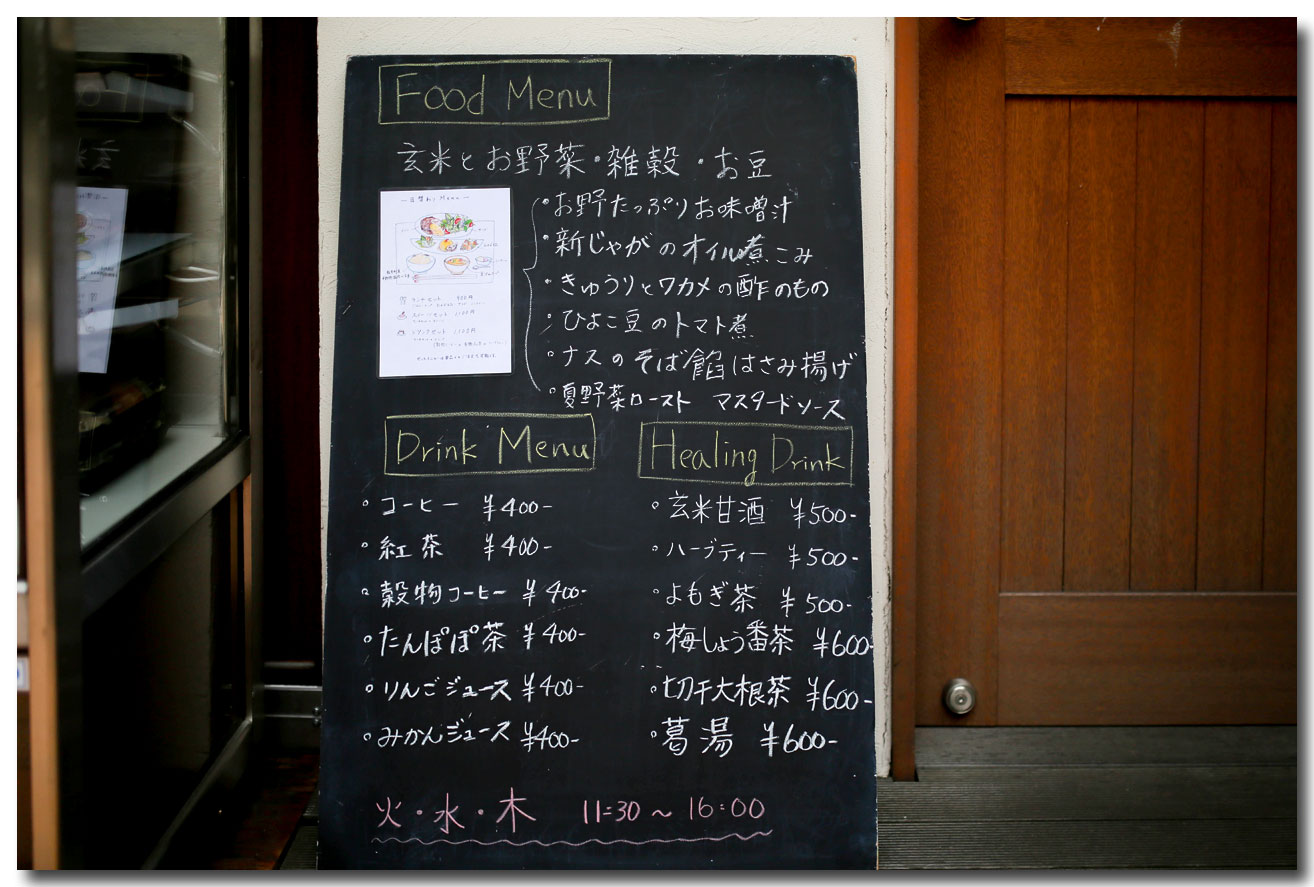 Food Menu
玄米とお野菜・雑穀・お豆
・お野たっぷりお味噌汁
・新じゃがのオイル煮こみ
・きゅうりとワカメの酢のもの
・ひよこ豆のトマト煮
・ナスのそば餡はさみ揚げ
・夏野菜ロースト マスタードソース
Menu
ランチセット
Drink Menu
・コーヒー ¥400-
・紅茶 ¥400-
・穀物コーヒー ¥400-
・たんぽぽ茶 ¥400-
・りんごジュース ¥400-
・みかんジュース ¥400-
Healing Drink
・玄米甘酒 ¥500-
・ハーブティー ¥500-
・よもぎ茶 ¥500-
・梅しょう番茶 ¥600-
・切干大根茶 ¥600-
・葛湯 ¥600-
火・水・木 11:30～16:00